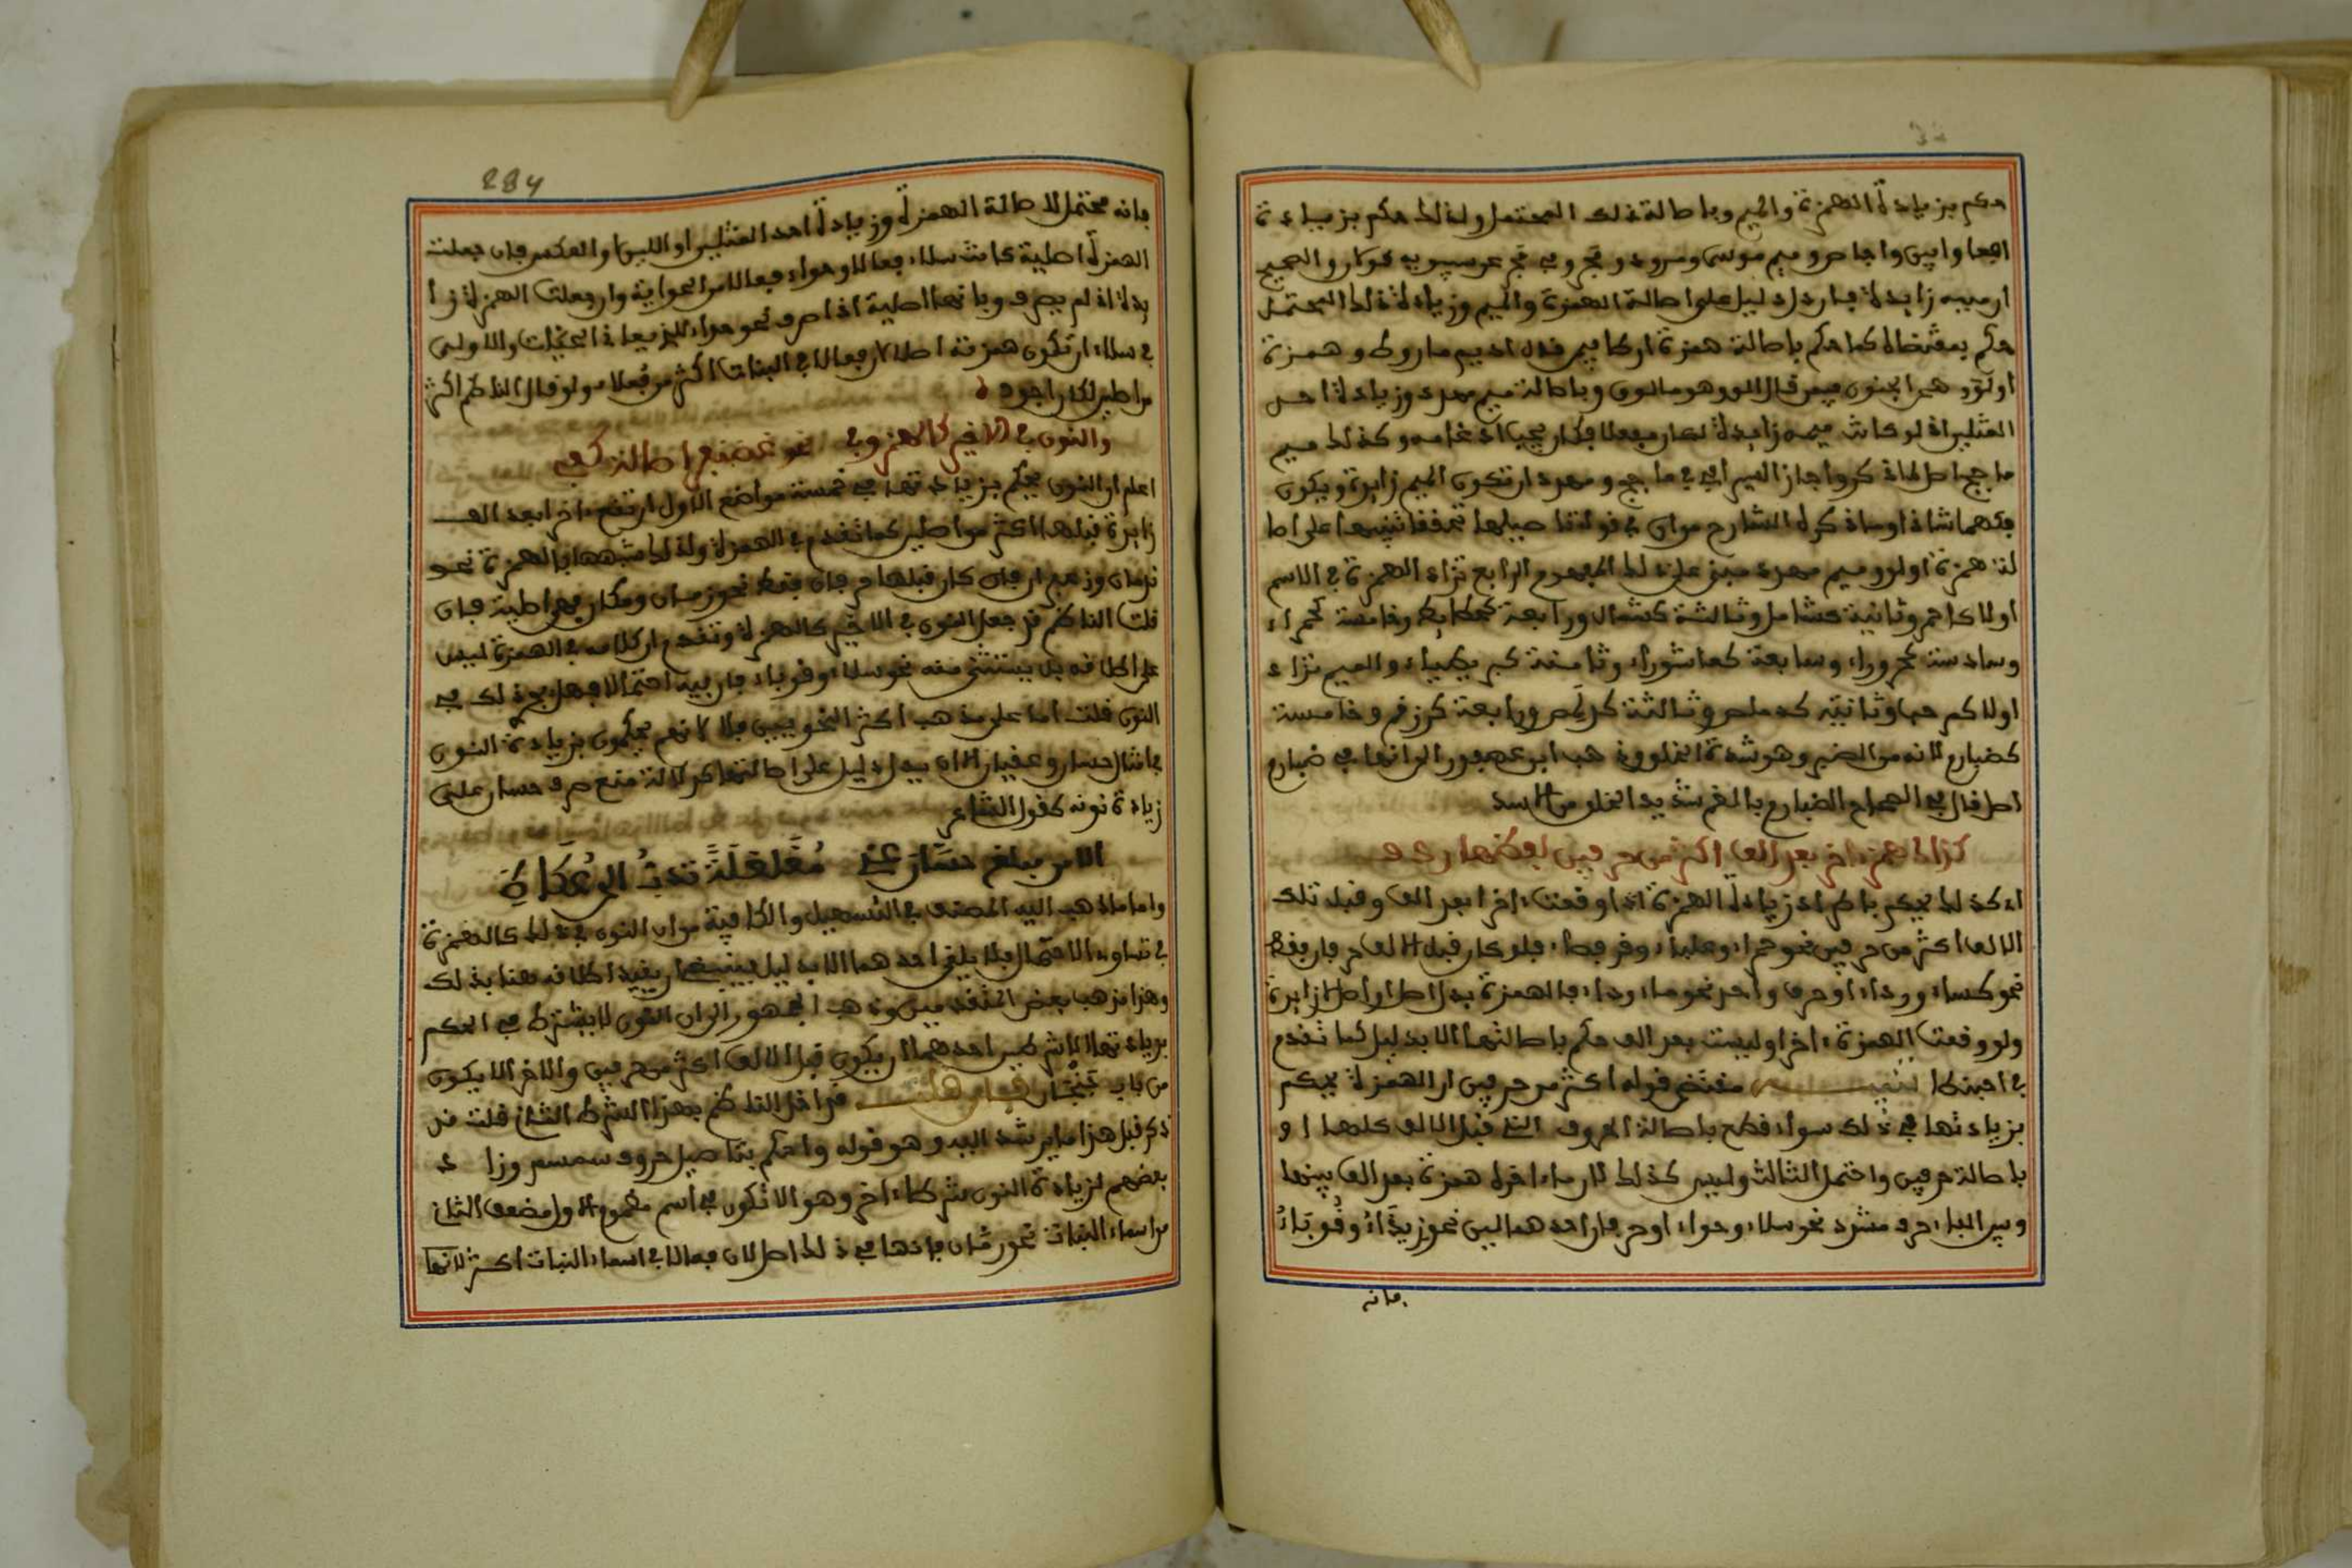 حكم بزيادة الهمزة والميم وباصالة ذلك المحتمل ولذلك حكم بزيادة
افعا وايين واجاص وميم موسى ومزود ومجن وفي مجن عن سيبويه قولان والصحيح
ان ميمه زايدة فان دل دليل على اصالة الهمزة والميم وزيادة ذلك المحتمل
حكم بمقتضاه كما حكم باصالة همزة ارطا فيمن قال اديم ماروط وهمزة
اولق وهو الجنون فيمن قال الق وهو مالوق وباصالة ميم مهدد وزيادة احد
المثلين اذ لو كانت ميمه زايدة لكان مفعلا فكان يجب ادغامه وكذلك ميم
ماجج اصل اذ كر واجاز السيرافي في ماجج ومهدد ان تكون الميم زايدة ويكون
فكهما شاذا
لة همزة اولق وميم مهدد مبني على ذلك المفهوم الرابع تزاد الهمزة في الاسم
اولا كاحمر وثانية كشامل وثالثة كشمال ورابعة كحطايط وخامسة كحمراء
وسادسة كحروراء وسابعة كعاشوراء وثامنة كبربيطياء والميم تزاد
اولا كمرحبا وثانية كدملص وثالثة كدلمص ورابعة كزرقم وخامسة
كضبارم لانه من الضبر وهو شدة الخلق وذهب ابن عصفور الى انها في ضبارم
اصل قال في الصحاح الضبارم بالضم شديد الخلق من الاسد
كذاك همز اخر بعد الف اكثر من حرفين لفظها ردف
اي كذلك يحكم باطراد زيادة الهمزة اذا وقعت اخرا بعد الف وقبل تلك
الالف اكثر من حرفين نحو حمراء وعلباء وقرفصاء فلو كان قبل الالف حرفان فقط
نحو كساء ورداء او حرف واحد نحو ماء وداء فالهمزة بدل اصل او اصل لا زايدة
ولو وقعت الهمزة اخرا وليست بعد الف حكم باصالتها الا بدليل كما تقدم
في احبنطا تنبيه مقتضى قوله اكثر من حرفين ان الهمزة يحكم
بزيادتها في ذلك سواء قطع باصالة الحروف التي قبل الالف كلها او
باصالة حرفين واحتمل الثالث وليس كذلك لان ما اخره همزة بعد الف بينها
وبين الفاء حرف مشدد نحو سلاء وحواء او حرفان احدهما لين نحو زيزاء وقوباء
فانه
284
فانه محتمل لاصالة الهمزة وزيادة احد المثلين او اللين او العكس فان جعلت
الهمزة اصلية كانت سلاء فعالا وحواء فعالا من الحواية وان جعلت الهمزة زا
في سلاء ان تكون همزته اصلا لان فعالا في النبات اكثر من فعلاء ولو قال الناظم اكثر
من اصلين لكان اجود
والنون في الاخير كالهمز وفي نحو غضنفر اصالة كفي
اعلم ان النون يحكم بزيادتها في خمسة مواضع الاول ان تقع اخرا بعد الف
زايدة قبلها اكثر من اصلين كما تقدم في الهمزة ولذلك شبهها بالهمزة نحو
ندمان وزعفران فان كان قبلها حرفان فقط نحو زمان ومكان فهي اصلية فان
قلت الناظم قد جعل النون في الاخير كالهمزة وتقدم ان كلامه في الهمزة ليس
على اطلاقه بل يستثنى منه نحو سلاء وقوباء فان فيه احتمالا فهل يجري ذلك في
النون قلت اما على مذهب اكثر النحويين فلا لانهم يحكمون بزيادة النون
في امثال حسان وعقيان الا ان يدل دليل على اصالتها كدلالة منع صرف حسان على
زيادة نونه كقول الشاعر
الا من مبلغ حسان عني مغلغلة تدب الى عكاظ
واما ما ذهب اليه المصنف في التسهيل والكافية من ان النون في ذلك كالهمزة
في تساوي الاحتمال فلا يلغى احدهما الا بدليل فينبغي ان يقيد اطلاقه هنا بذلك
وهذا مذهب بعض المتقدمين وذهب الجمهور الى ان النون لا يشترط في الحكم
بزيادتها الا شرطين احدهما ان يكون قبل الالف اكثر من حرفين والاخر الا يكون
من باب جنجان فان قلت قد اخل الناظم بهذا الشرط الثاني قلت قد
ذكر قبل هذا ما يرشد اليه وهو قوله واحكم بتاصيل حروف سمسم وزاد
بعضهم لزيادة النون شرطا اخر وهو الا تكون في اسم مضموم الاول مضعف الثاني
من اسماء النبات نحو رمان فانها في ذلك اصل لان فعالا في اسماء النبات اكثر لانها